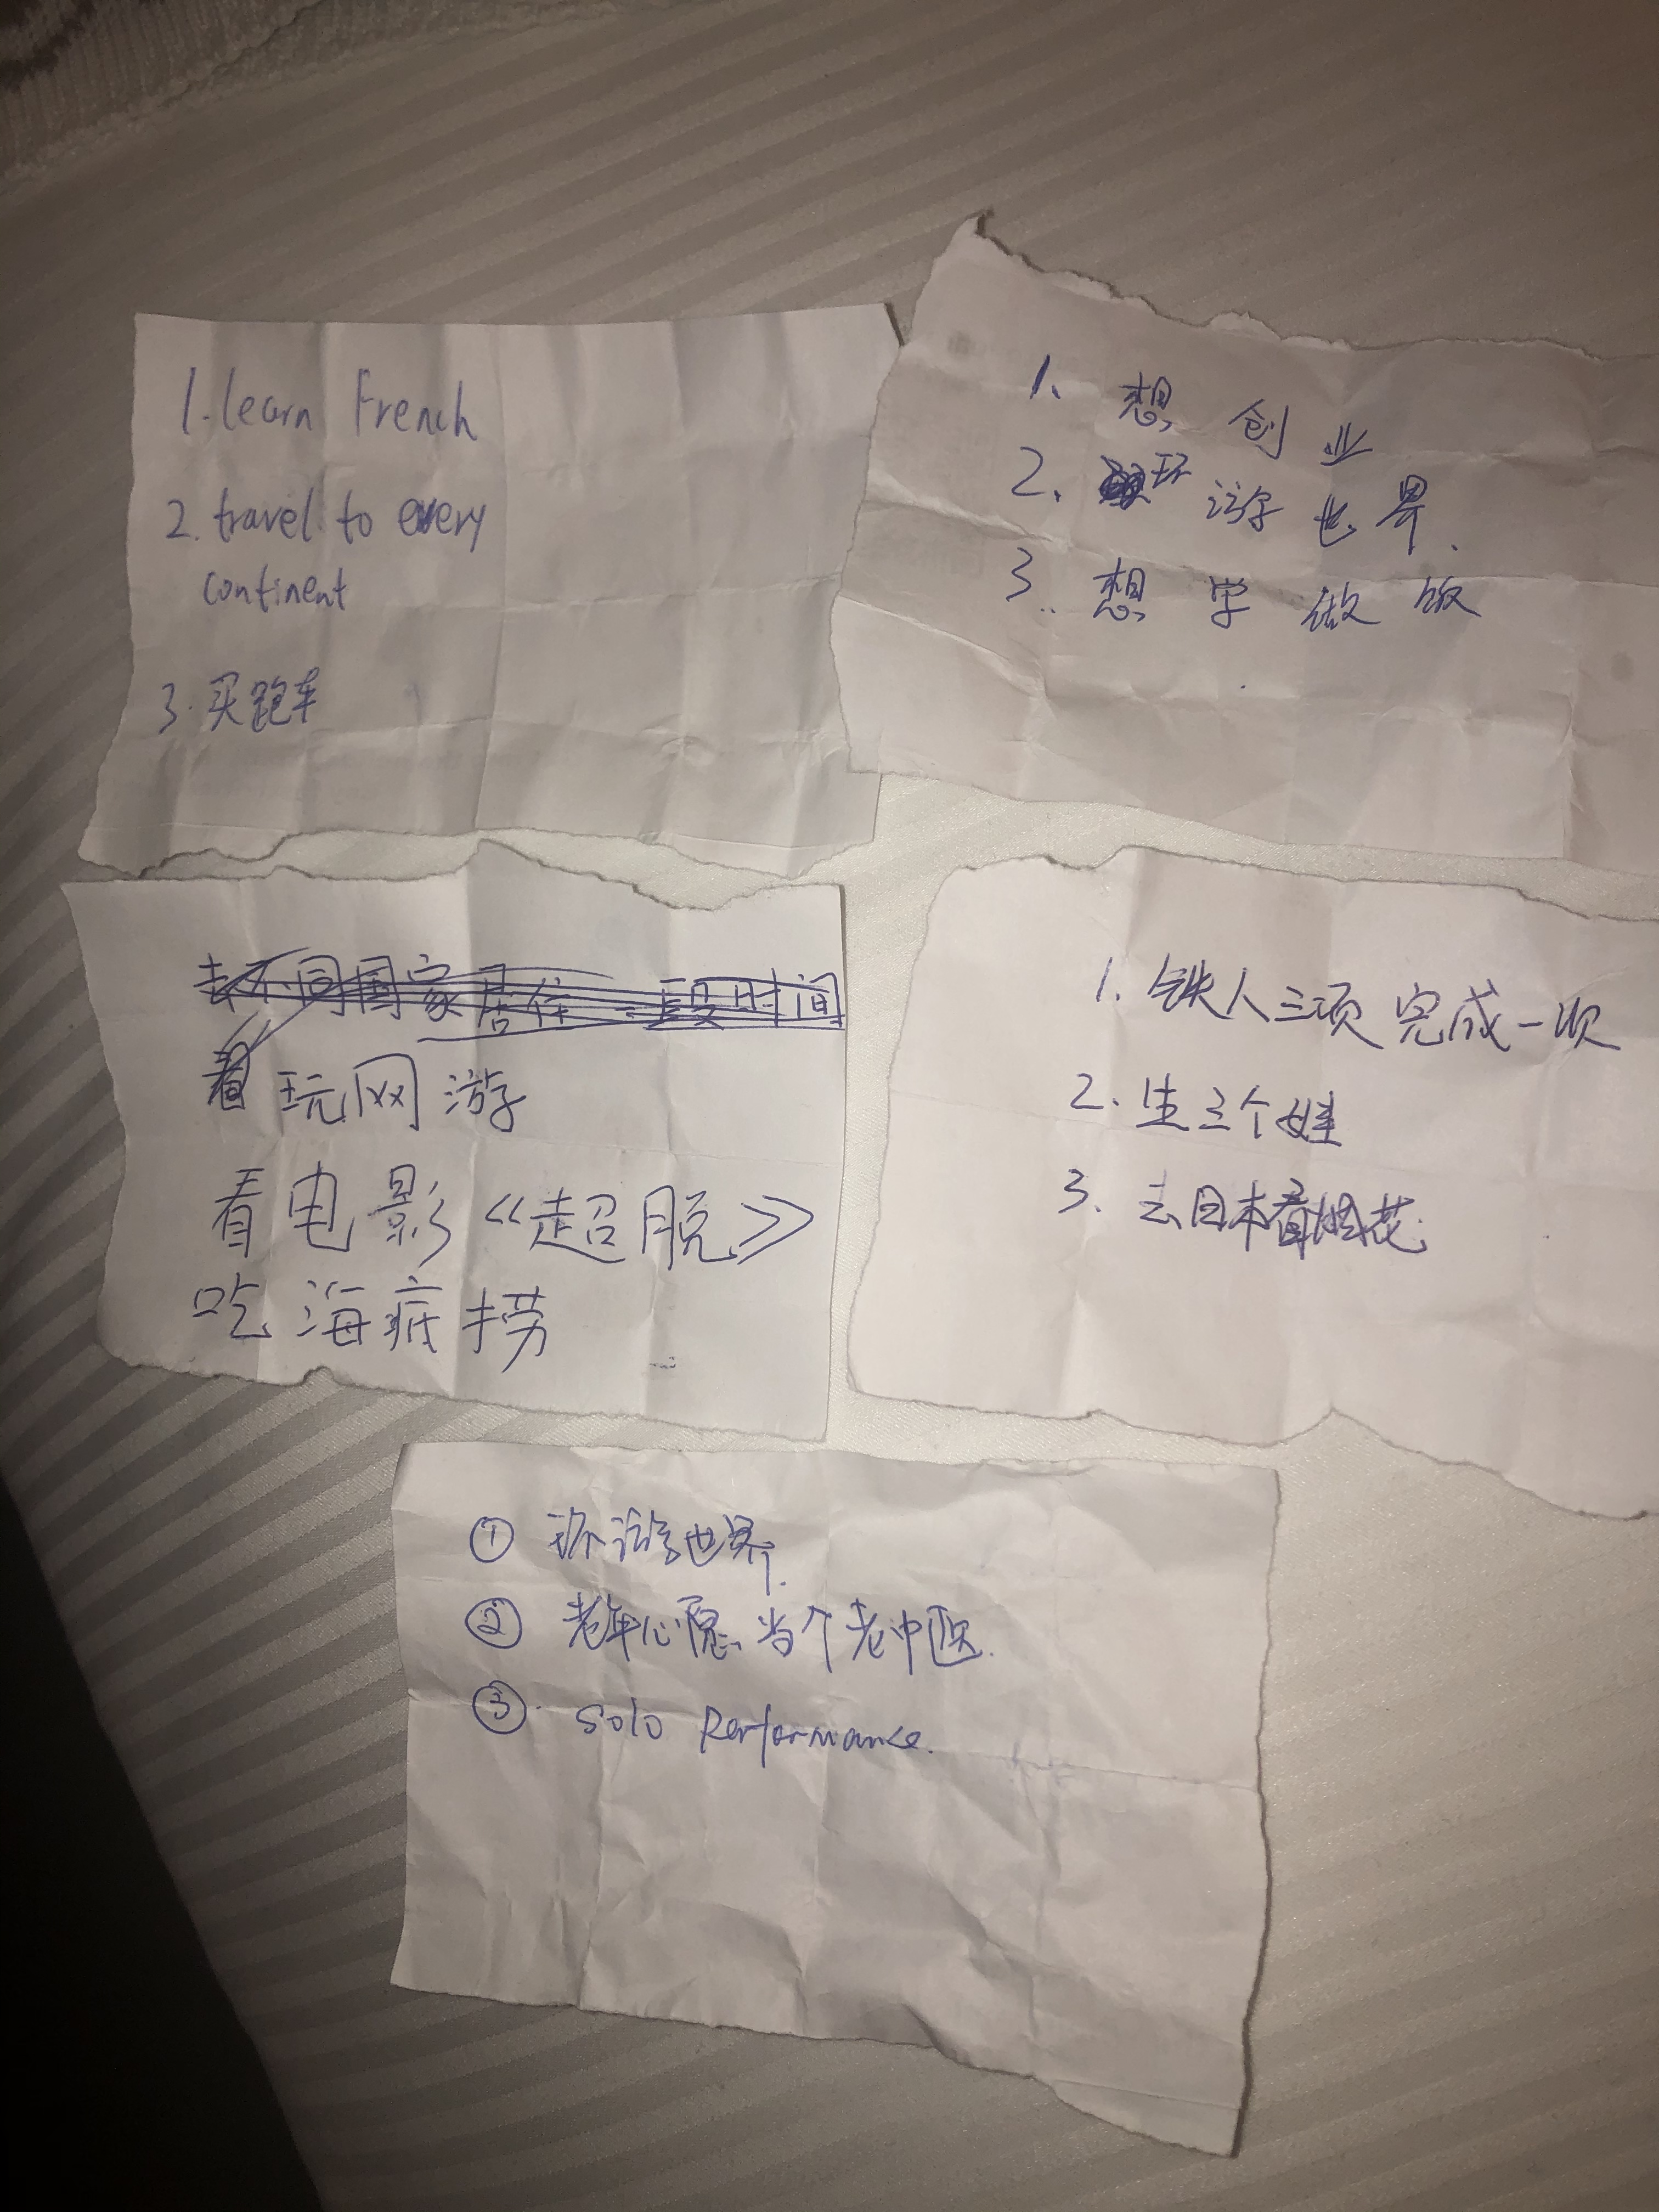 1. learn French
2. travel to every
continent
3. 买跑车
1、想创业
2、环游世界.
3.. 想学做饭
去不同国家居住一段时间
看 玩网游
看电影《超脱》
吃海底捞
1. 铁人三项完成一次
2. 生三个娃
3. 去日本看烟花.
① 环游世界.
② 老年心愿、当个老中医.
③. Solo Performance.